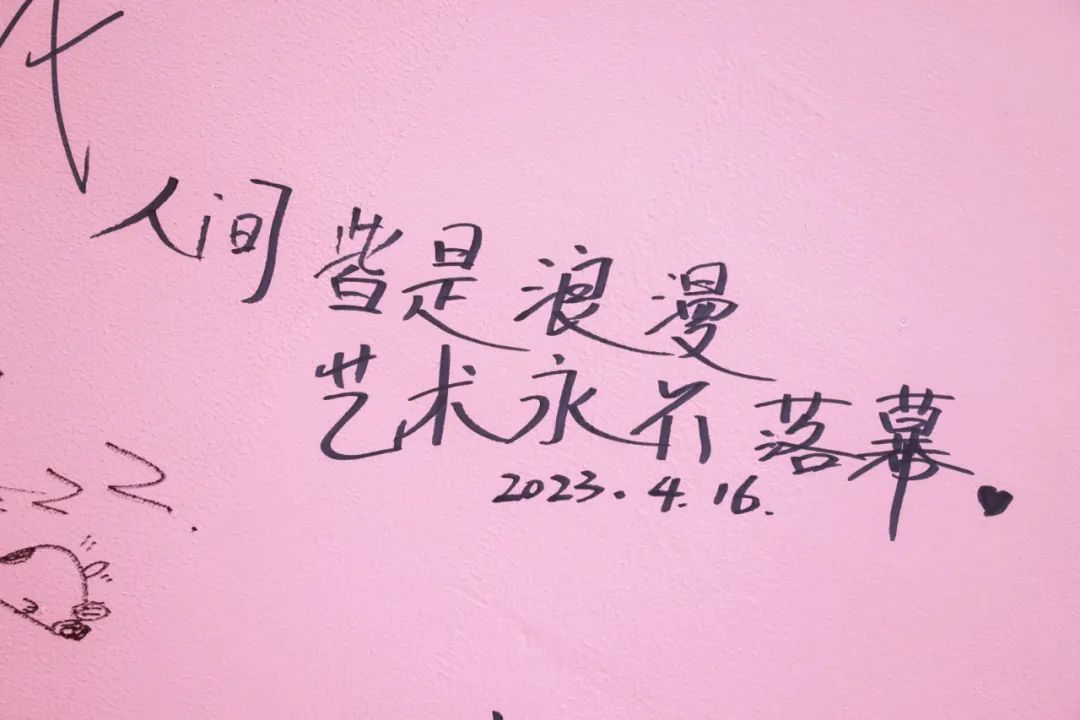 人间皆是浪漫
艺术永不落幕
2023.4.16.